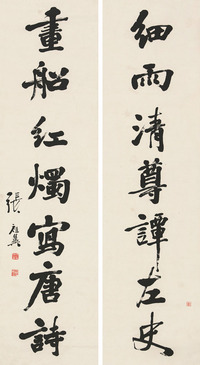 細雨清尊譚左史
畫船紅燭寫唐詩
張祖翼